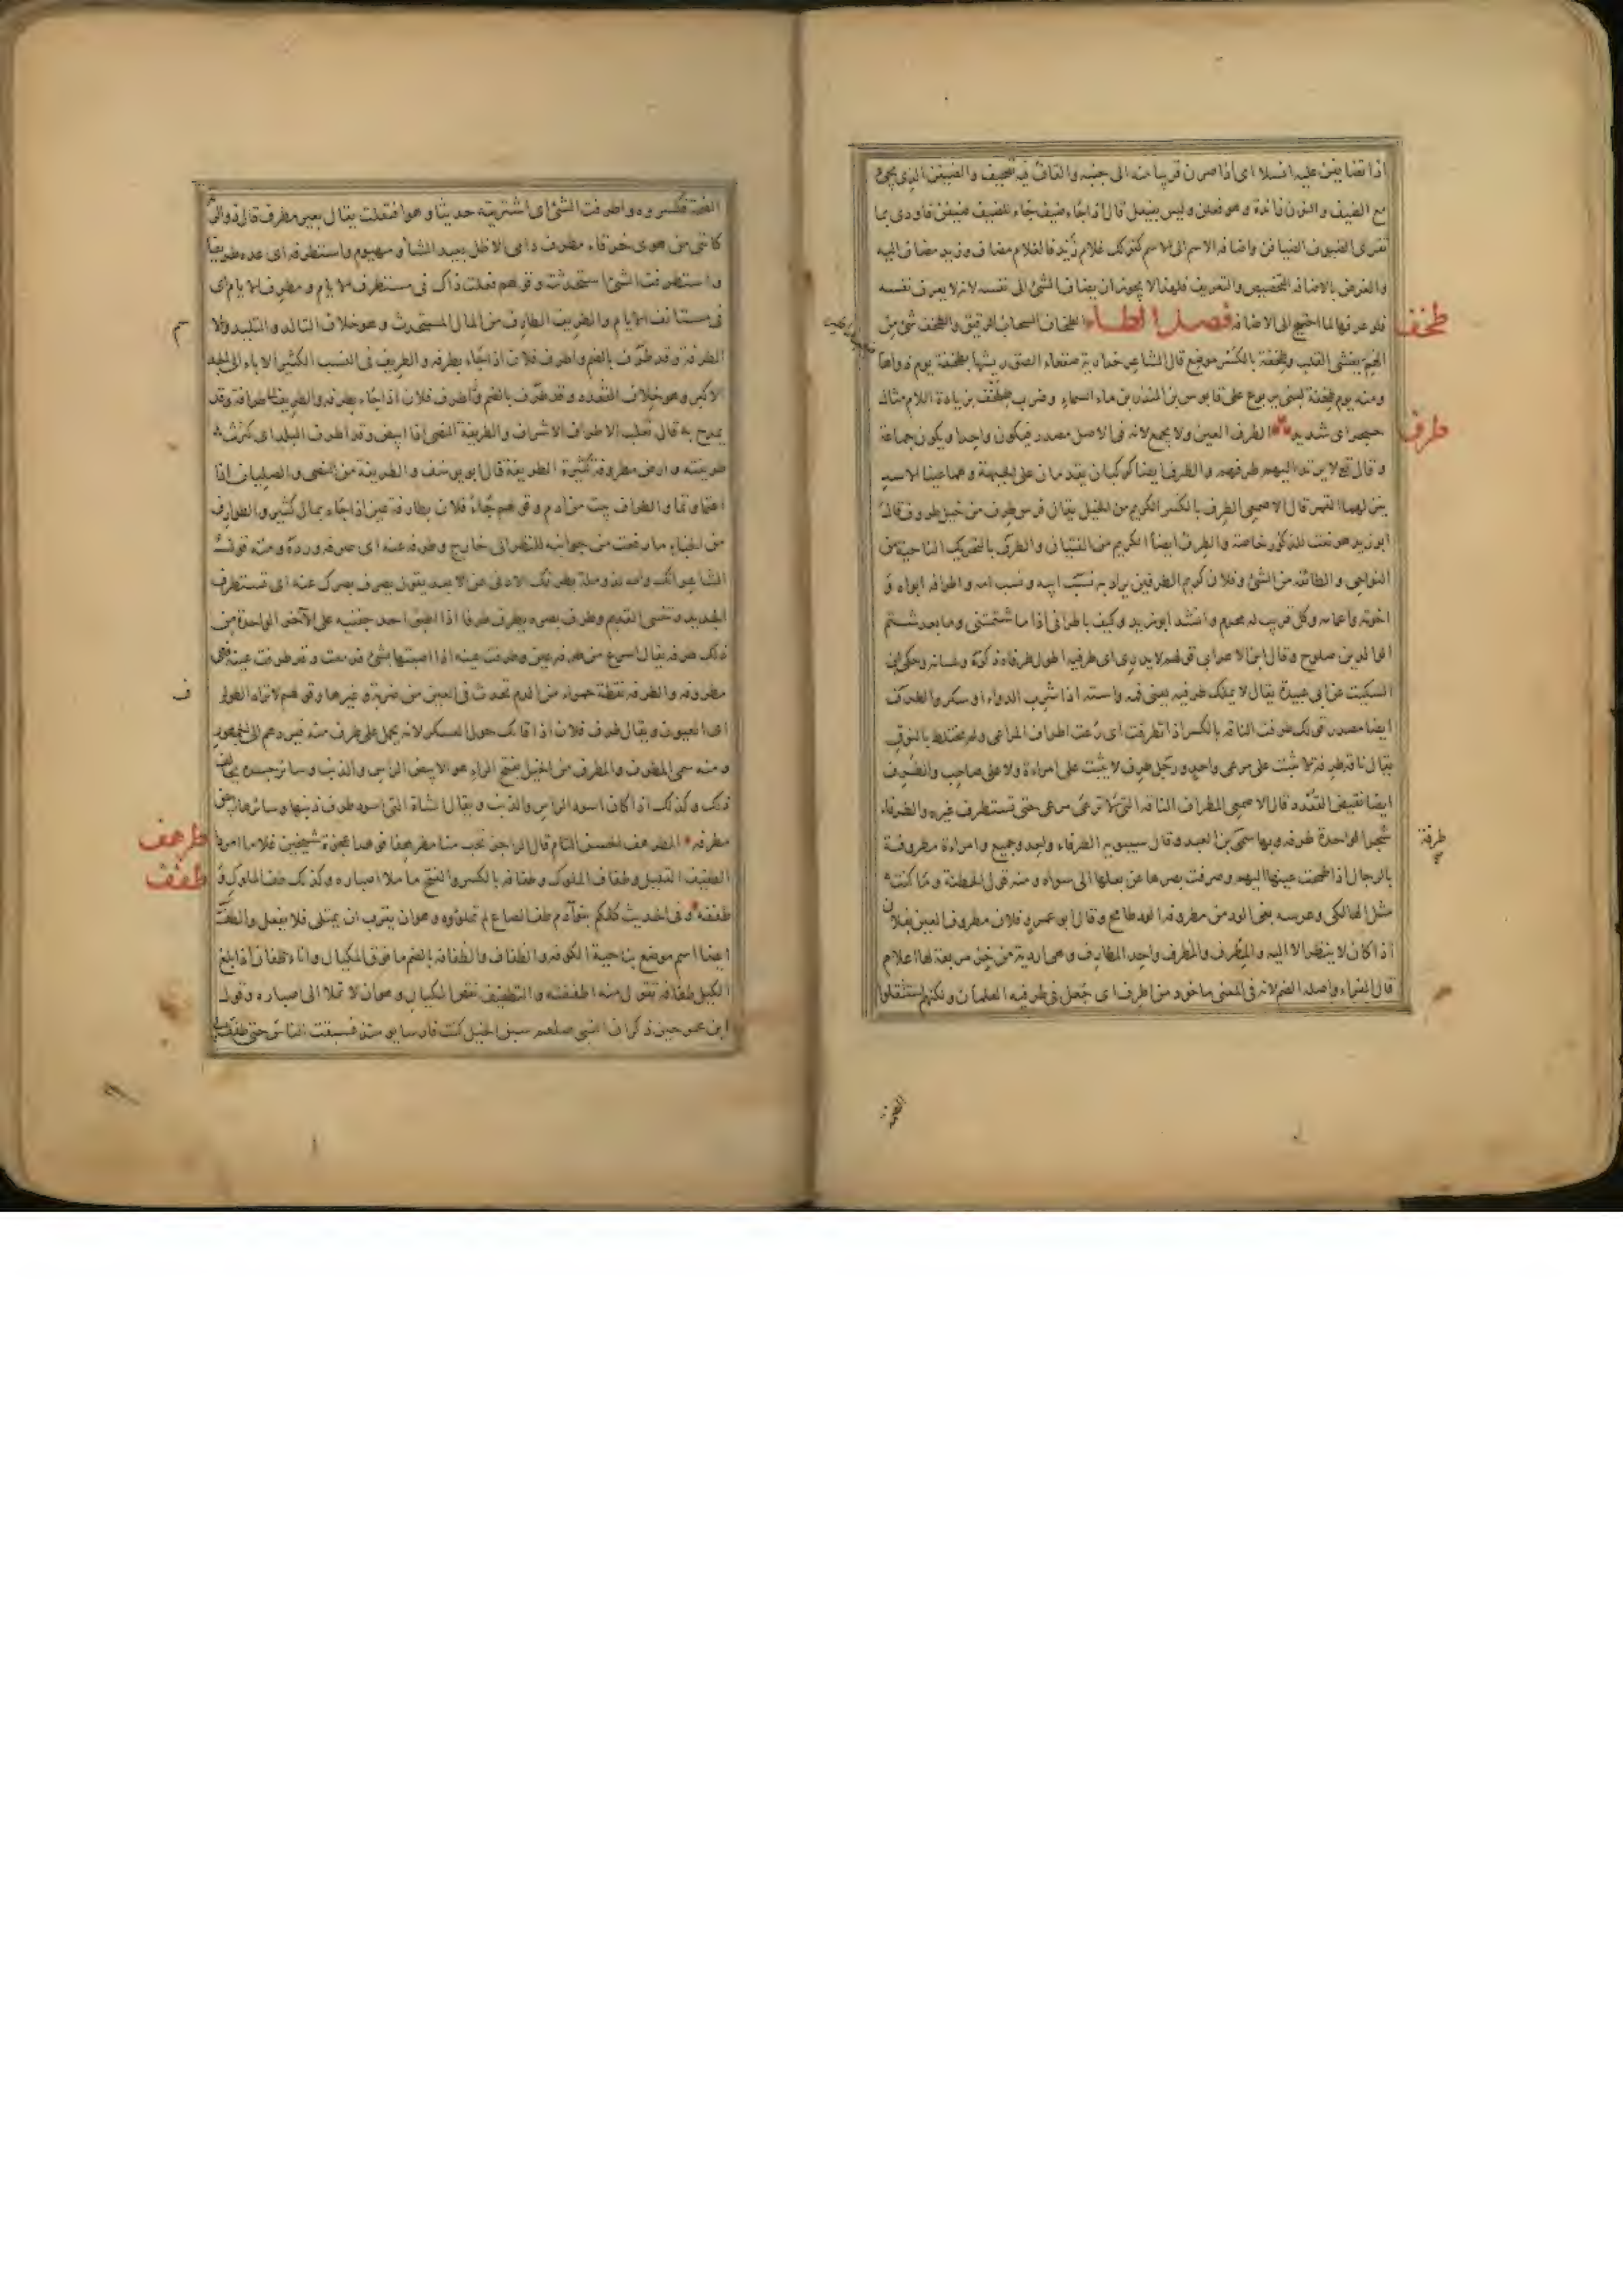 اذا تضايفن عليه انسلا اى اذا صرن قريبا منه الى جنبه والقاف فيه تصحيف والضيفن الذى يجئ
مع الضيف والنون زائدة وهو فعلن وليس بفيعل قال اذا جاء ضيف جاء للضيف ضيفن فاودى بما
تقرى الضيوف الضيافن واضافة الاسم الى الاسم كقولك غلام زيد فالغلام مضاف وزيد مضاف اليه
والغرض بالاضافة التخصيص والتعريف فلهذا لا يجوز ان يضاف الشئ الى نفسه لانه لا يعرف نفسه
فلو عرفها لما احتيج الى الاضافة فصل الطاء الطخاف السحاب الرقيق والطخف شئ من
طخف
الهم يغشى القلب وطخفة بالكسر موضع قال الشاعر خدارية صقعاء الصق ريشها بطخفة يوم ذو اهاضيب
ومنه يوم طخفة لبنى يربوع على قابوس بن المنذر بن ماء السماء وضرب طلخف بزيادة اللام مثال
حبجر اى شديد الطرف العين ولا يجمع لانه فى الاصل مصدر فيكون واحدا ويكون جماعة
طرف
وقال تع لا يرتد اليهم طرفهم والطرف ايضا كوكبان يقدمان على الجبهة وهما عينا الاسد
ينزلهما القمر قال الاصمعى الطرف بالكسر الكريم من الخيل يقال فرس طرف من خيل طروف قال
ابو زيد هو نعت للذكور خاصة والطرف ايضاً الكريم من الفتيان والطرف بالتحريك الناحية من
النواحى والطائفة من الشئ وفلان كريم الطرفين يراد به نسب ابيه ونسب امه واطرافه ابواه و
اخوته واعمامه وكل قريب له محرم وانشد ابو زيد وكيف باطرافى اذا ما شتمتنى وما بعد شتم
الوالدين صلوح وقال ابن الاعرابى قولهم لا يدرى اى طرفيه اطول طرفاه ذكره ولسانه وحكى ابن
السكيت عن ابى عبيدة يقال لا يملك طرفيه يعنى فمه واسته اذا شرب الدواء او سكر والطرف
ايضا مصدر قولك طرفت الناقة بالكسر اذا تطرفت اى رعت اطراف المراعى ولم تختلط بالنوق
يقال ناقة طرفة لا تثبت على مرعى واحد ورجل طرف لا يثبت على امراءة ولا على صاحب والطرف
ايضا نقيض القعدد قال الاصمعى المطراف الناقة التى لا ترعى مرعى حتى تستطرف غيره والطرفاء
شجر الواحدة طرفة وبها سمى بن العبد وقال سيبويه الطرفاء واحد وجميع وامراءة مطروفة
طرفة
بالرجال اذا طمحت عينها اليهم وصرفت بصرها عن بعلها الى سواه ومنه قول الحطئة وما كنت
مثل الهالكى وعرسه بغى الود من مطروفة الود طامح وقال ابو عمرو فلان مطروف العين بفلان
اذا كان لا ينظر الا اليه والمطرف والمطرف واحد المطارف وهى اردية من خز مربعة لها اعلام
قال الفراء واصله الضم لانه فى المعنى ماخوذ من اطرف اى جعل فى طرفيه العلمان ولكنهم استثقلوا
الضمة
الضمة فكسروه واطرفت الشئ اى اشتريته حديثا وهو افتعلت يقال بعير مطرف قال ذو الرمة
كاننى من هوى خرقاء مطرف دامى الاظل بعيد الشأو مهيوم واستطرفه اى عده طريفا
واستطرفت الشئ استحدثته وقولهم فعلت ذاك فى مستطرف الايام ومطرف الايام اى
فى مستانف الايام والطريف الطارف من المال المستحدث وهو خلاف التالد والتليد والا
الطرفة وقد طرف بالضم واطرف فلان اذا جاء بطرفة والطريف فى النسب الكثير الاباء الى الجد
الاكبر وهو خلاف القعدد وقد طرف بالضم واطرف فلان اذا جاء بطرفة والطريف طرافة وقد
يمدح به قال ثعلب الاطراف الاشراف والطريفة النصى اذا ابيض وقد اطرف البلد اى كثرت
طريفته وارض مطروفة كثيرة الطريفة قال ابو يوسف والطريفة من النصى والصليان اذا
اعتما وتما والطراف بيت من ادم وقولهم جاء فلان بطارفة عين اذا جاء بمال كثير والطوارف
من الخباء ما رفعت من جوانبه للنظر الى خارج وطرفه عنه اى صرفه ورده ومنه قول
الشاعر انك والله لذو ملة يطرفك الادنى عن الابعد يقول يصرف بصرك عنه اى تستطرف
الجديد وتنسى القديم وطرف بصره يطرف طرفا اذا اطبق احد جفنيه على الآخر الواحدة من
ذلك طرفة يقال اسرع من طرفة عين وطرفت عينه اذا اصبتها بشئ فدمعت وقد طرفت عينه فهى
مطروفة والطرفة نقطة حمراء من الدم تحدث فى العين من ضربة وغيرها وقولهم لا تراه الطوارف
ف
اى العيون ويقال طرف فلان اذا قاتل حول العسكر لانه يحمل على طرف منه فيردهم الى الجمهور
ومنه سمى المطرف والمطرف من الخيل بفتح الراء هو الابيض الراس والذنب وسائر جسده يخالف
ذلك وكذلك اذا كان اسود الراس والذنب ويقال للشاة التى اسود طرف ذنبها وسائرها ابيض
مطرفة المطرهف الحسن التام قال الراجز تحب منا مطرهفا فوهدا عجزة شيخين غلاما امردا
طرهف
الطفيف القليل وطفاف المكوك وطفافه بالكسر والفتح ما ملا اصباره وكذلك طف المكوك و
طفف
طففه وفى الحديث كلكم بنو آدم طف الصاع لم تملؤوه وهو ان يقرب ان يمتلى فلا يفعل والطف
ايضا اسم موضع بناحية الكوفة والطفاف والطفافة بالضم ما فوق المكيال واناء طفان اذا بلغ
الكيل طفافه تقول منه اطففته والتطفيف نقص المكيال وهو ان لا تملا الى اصباره وقول
ابن عمر حين ذكر ان النبى صلعم سبق الخيل كنت فارسا يومئذ فسبقت الناس حتى طفف